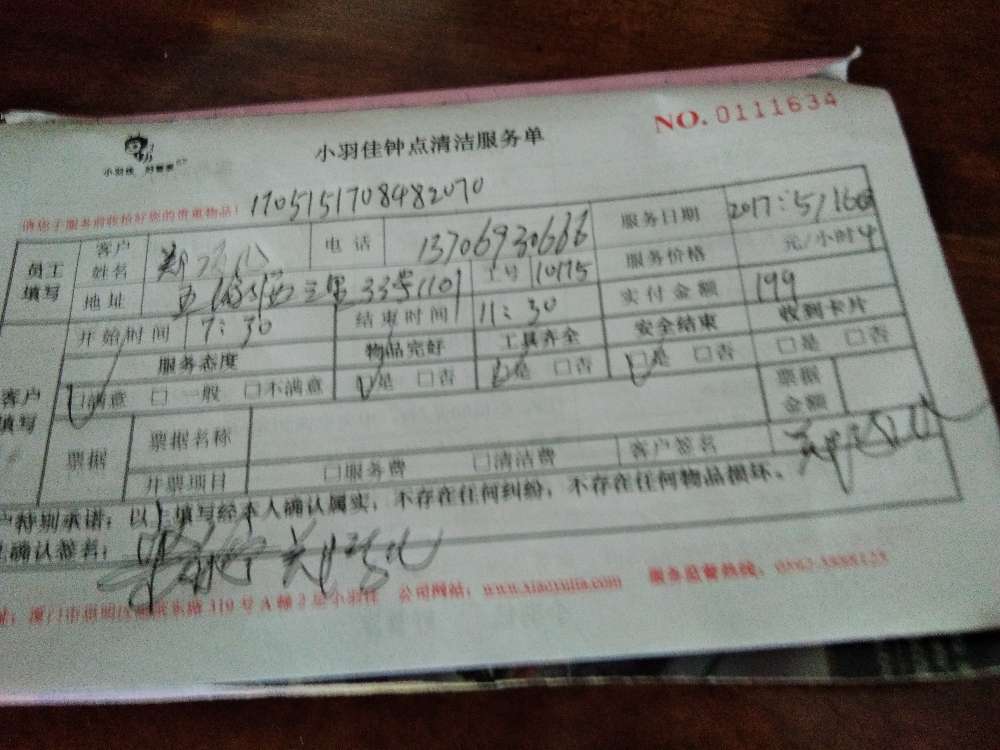 NO. 0111634
小羽佳 好管家
小羽佳钟点清洁服务单
请您于服务前收拾好您的贵重物品！
1705151708482070
员工填写
客户姓名 郑
电话 13706930666
服务日期 2017:5/16
地址 西三里33号1101
工号 10175
服务价格 元/小时 4
开始时间 7:30
结束时间 11:30
实付金额 199
客户填写
服务态度 物品完好 工具齐全 安全结束 收到卡片
□满意 □一般 □不满意 □是 □否 □是 □否 □是 □否 □是 □否
票据 票据名称 票据金额
开票项目 □服务费 □清洁费 客户签名
户特别承诺：以上填写经本人确认属实，不存在任何纠纷，不存在任何物品损坏。
确认签名：
310号A幢2层小羽佳 公司网站：www.xiaoyujia.com 服务监督热线：0592-3888123